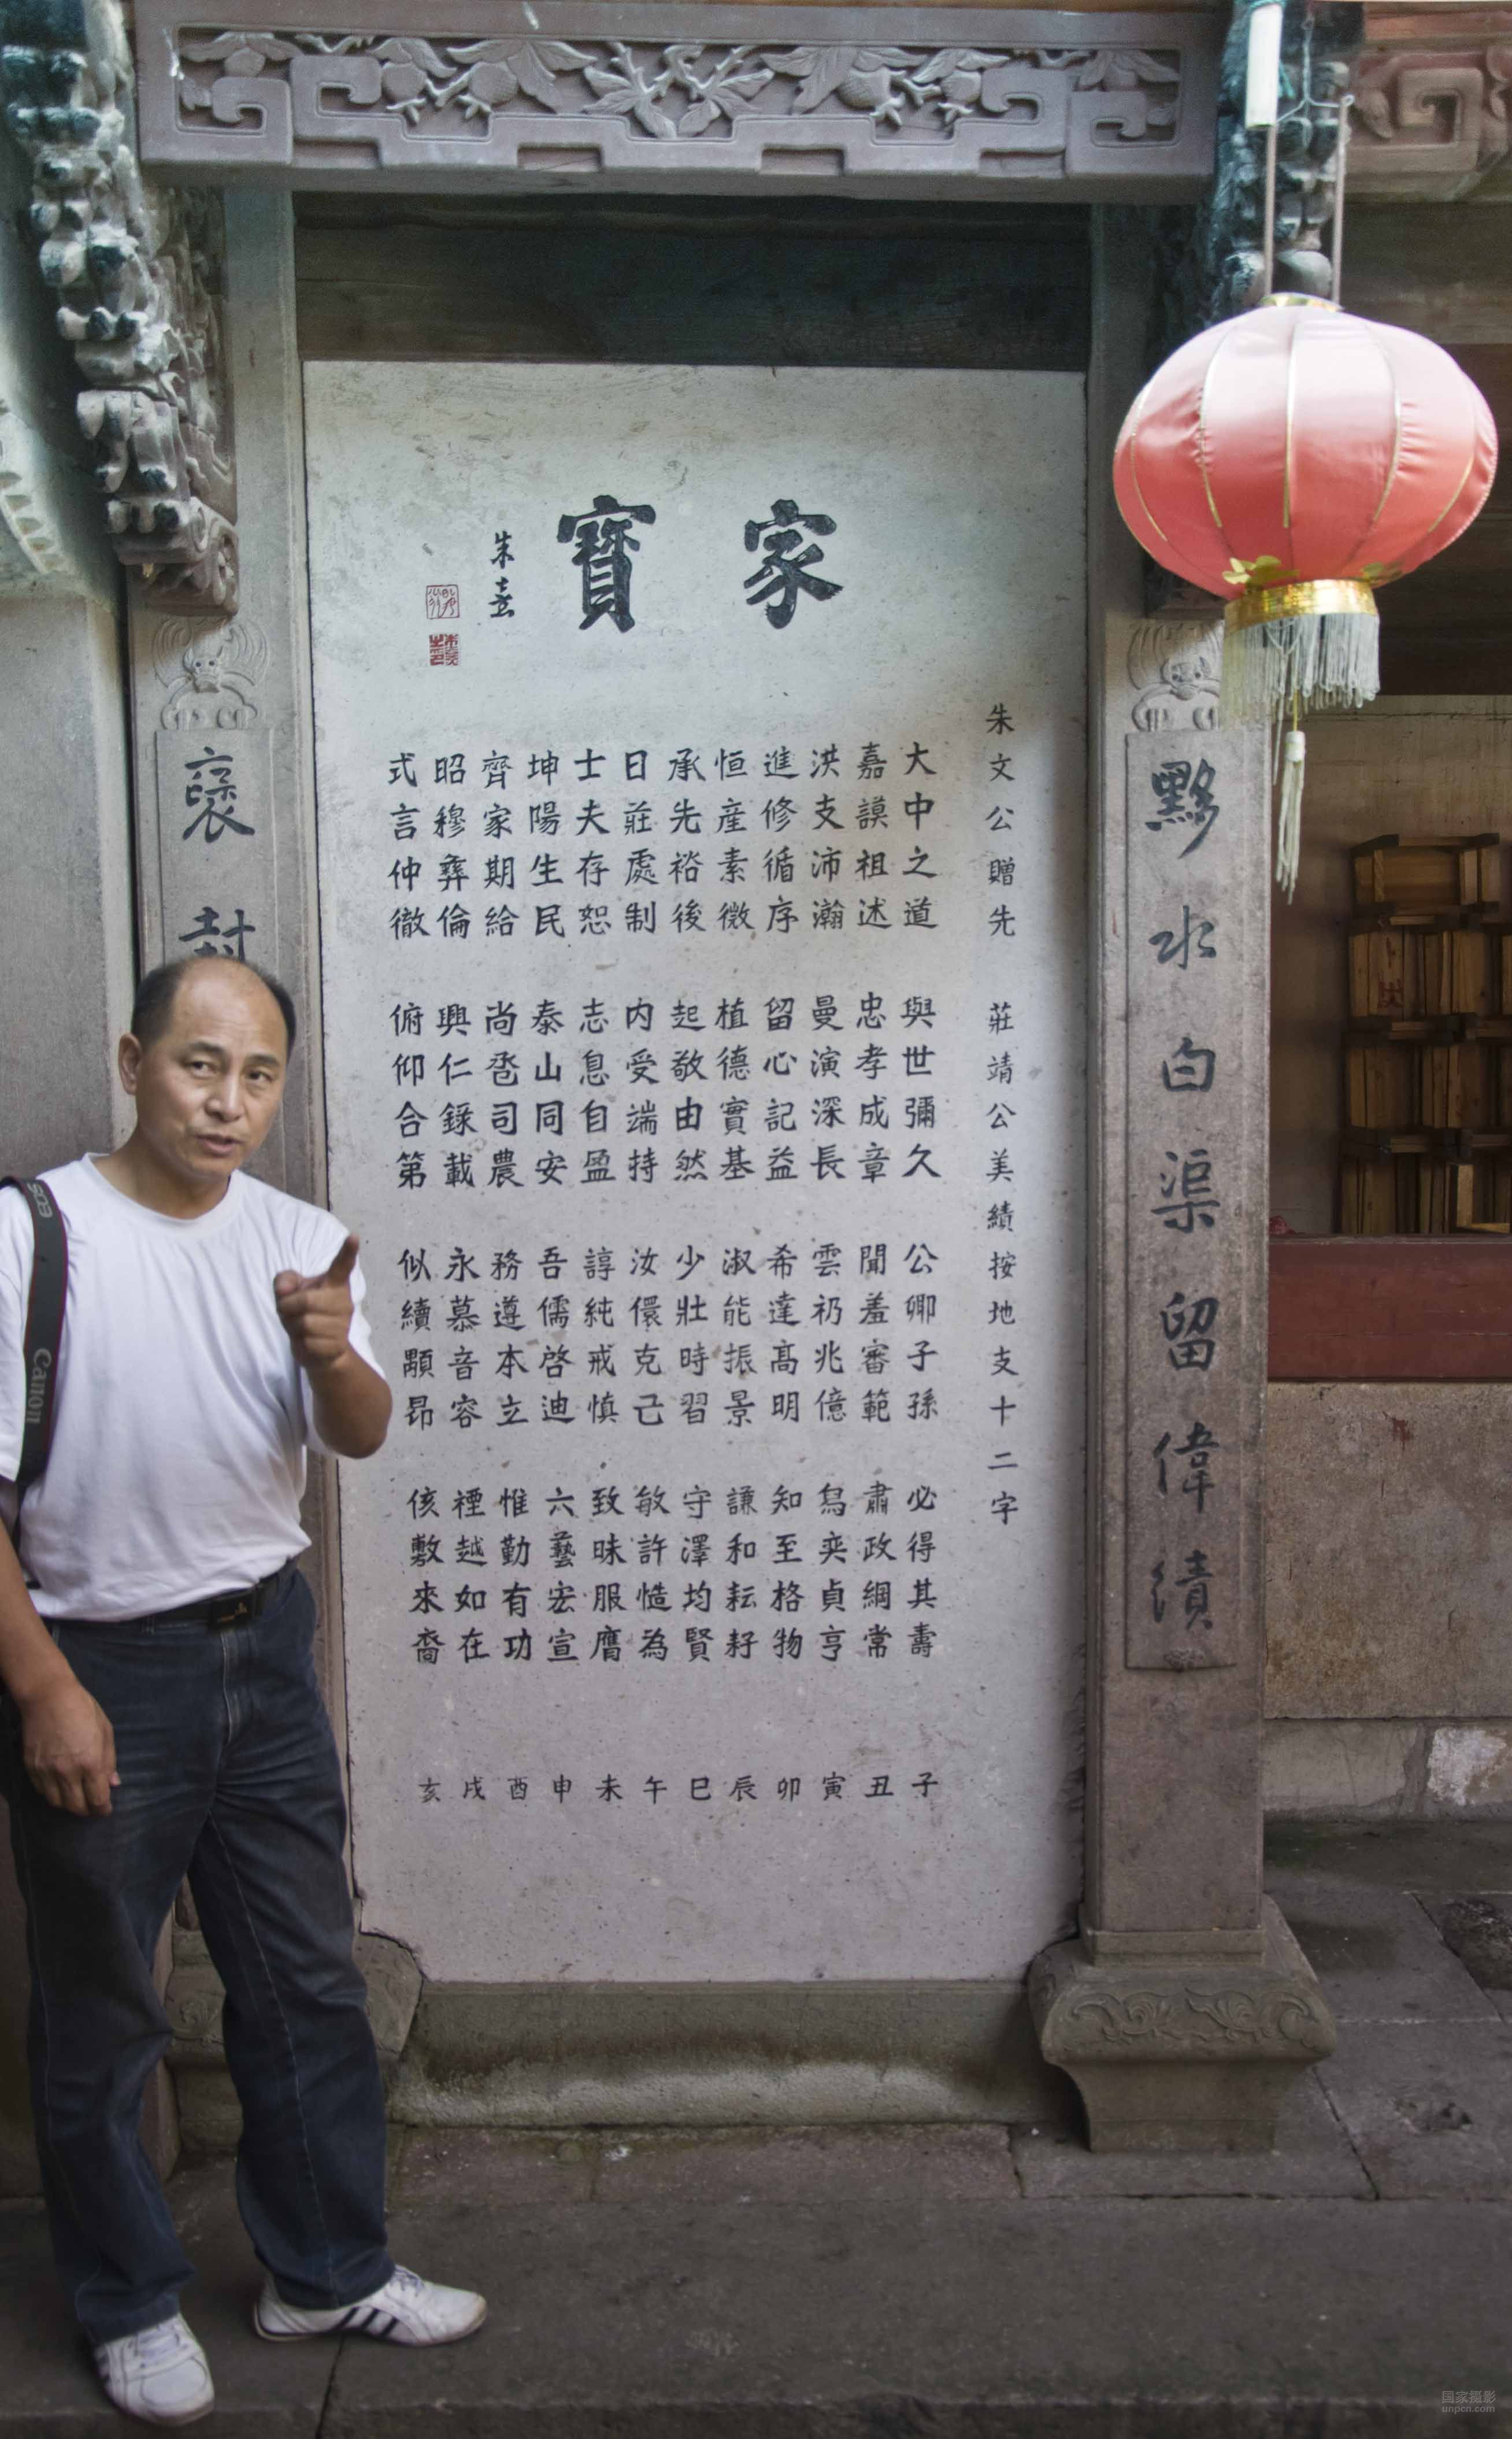 家寶
朱熹
朱文公贈先莊靖公美績按地支十二字
大中之道與世彌久公卿子孫必得其壽子
嘉謨祖述忠孝成章聞羞審範肅政綱常丑
洪支沛瀚曼演深長雲礽兆億舄奕貞亨寅
進修循序留心記益希達高明知至格物卯
恒産素微植德實基淑能振景謙和耘耔辰
承先裕後起敬由然少壯時習守澤均賢巳
日莊處制内受端持汝儇克己敏許慥為午
士夫存恕志息自盈諄純戒慎致昧服膺未
坤陽生民泰山同安吾儒啓迪六藝宏宣申
齊家期給尚卺司農務遵本立惟勤有功酉
昭穆彝倫興仁錄載永慕音容禋越如在戌
式言仲徹俯仰合第似續顒昂侅敷來裔亥
黟水白渠留偉績
褒封
EOS
Canon
国家摄影
unpcn.com